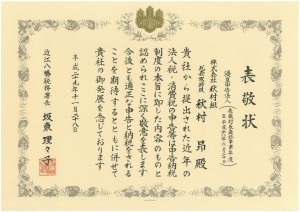 表敬状
株式会社 秋村組
代表取締役
秋村 昂 殿
貴社から提出された近年の
法人税・消費税の申告等は申告納税
制度の本旨に即した内容のものと
認められここに深く敬意を表します
今後とも適正な申告と納税をされる
ことを期待するとともに併せて
貴社の御発展を念じております
平成二十九年十一月二十八日
近江八幡税務署長
坂東 理々子